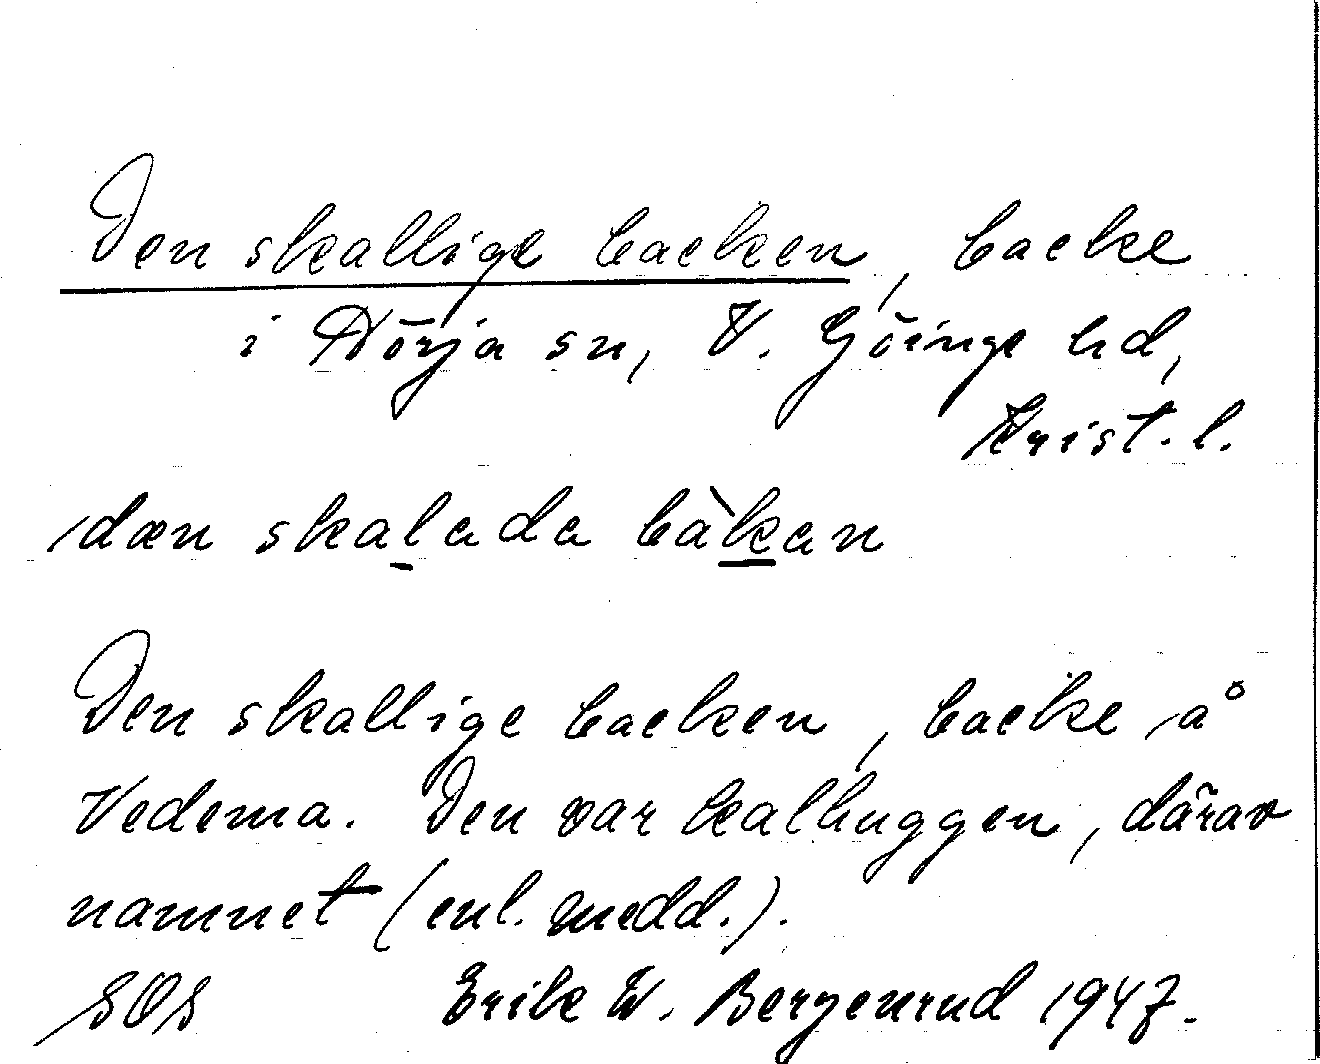 Den skallige backen, backe
i Nörja sn, V. Göinge hd,
Krist. l.
dæn skalada bàkan
Den skallige backen, backe å
Vedema. Den var kalhuggen, därav
namnet (enl. medd.).
SOS Erik W. Bergenrud 1947.